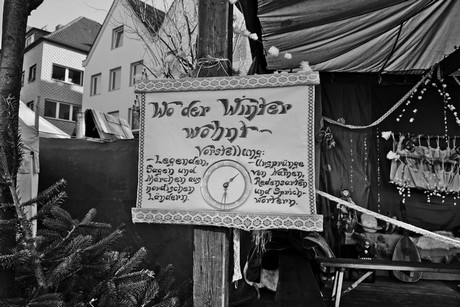 Wo der Winter
wohnt
Vorstellung:
- Legenden,
Sagen und
Märchen aus
nordischen
Ländern.
- Ursprünge
von Namen,
Redensarten
und Sprich-
wörtern.